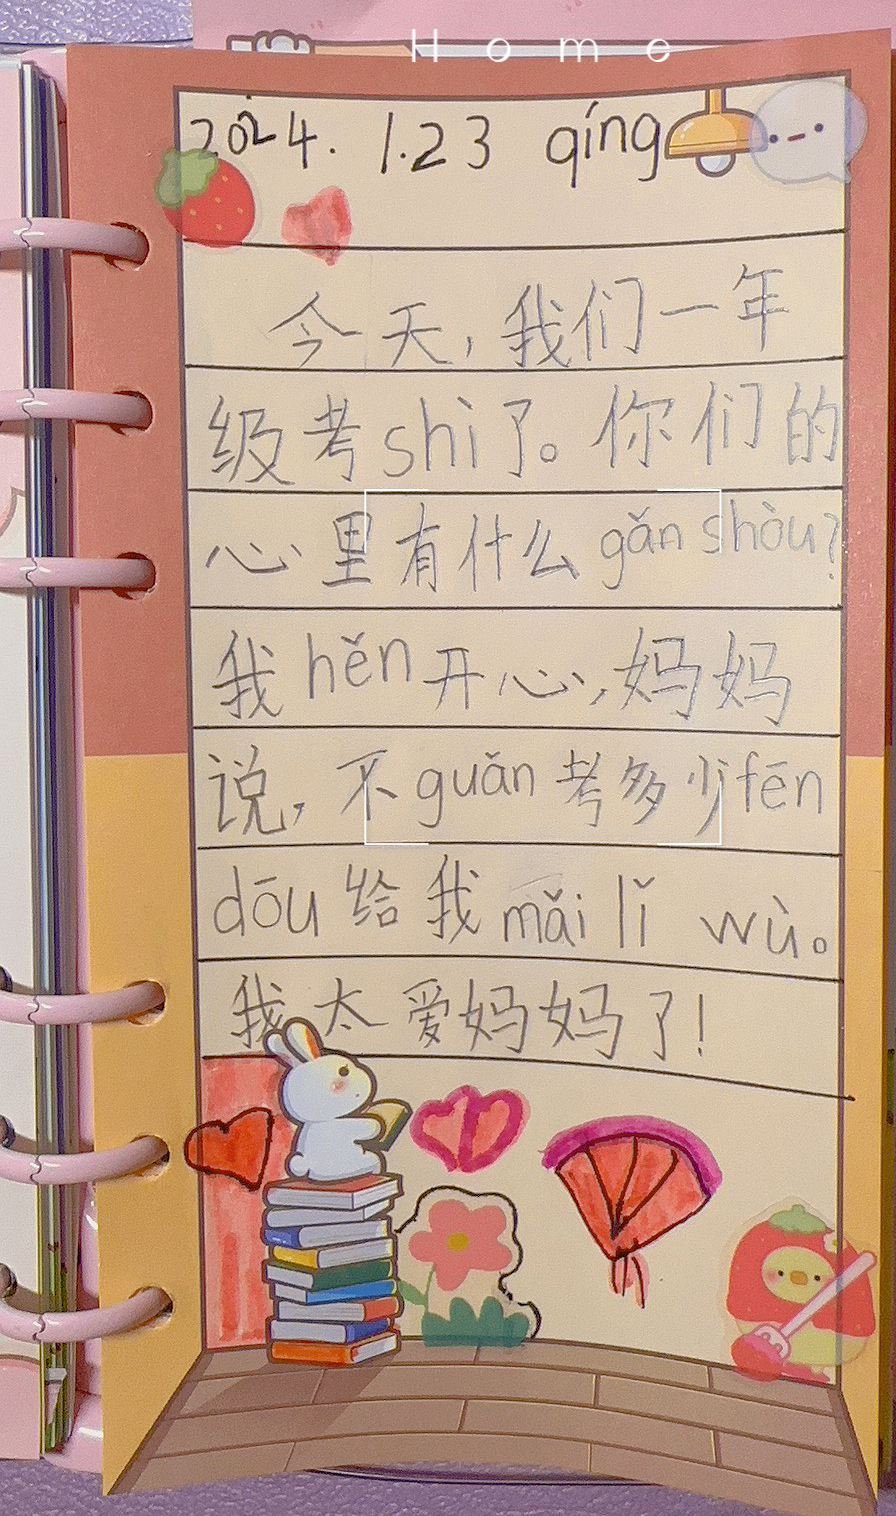 Home
2024. 1.23 qíng
今天，我们一年
级考shì了。你们的
心里有什么gǎn shòu？
我hěn开心，妈妈
说，不guǎn考多少fēn
dōu给我mǎi lǐ wù。
我太爱妈妈了！